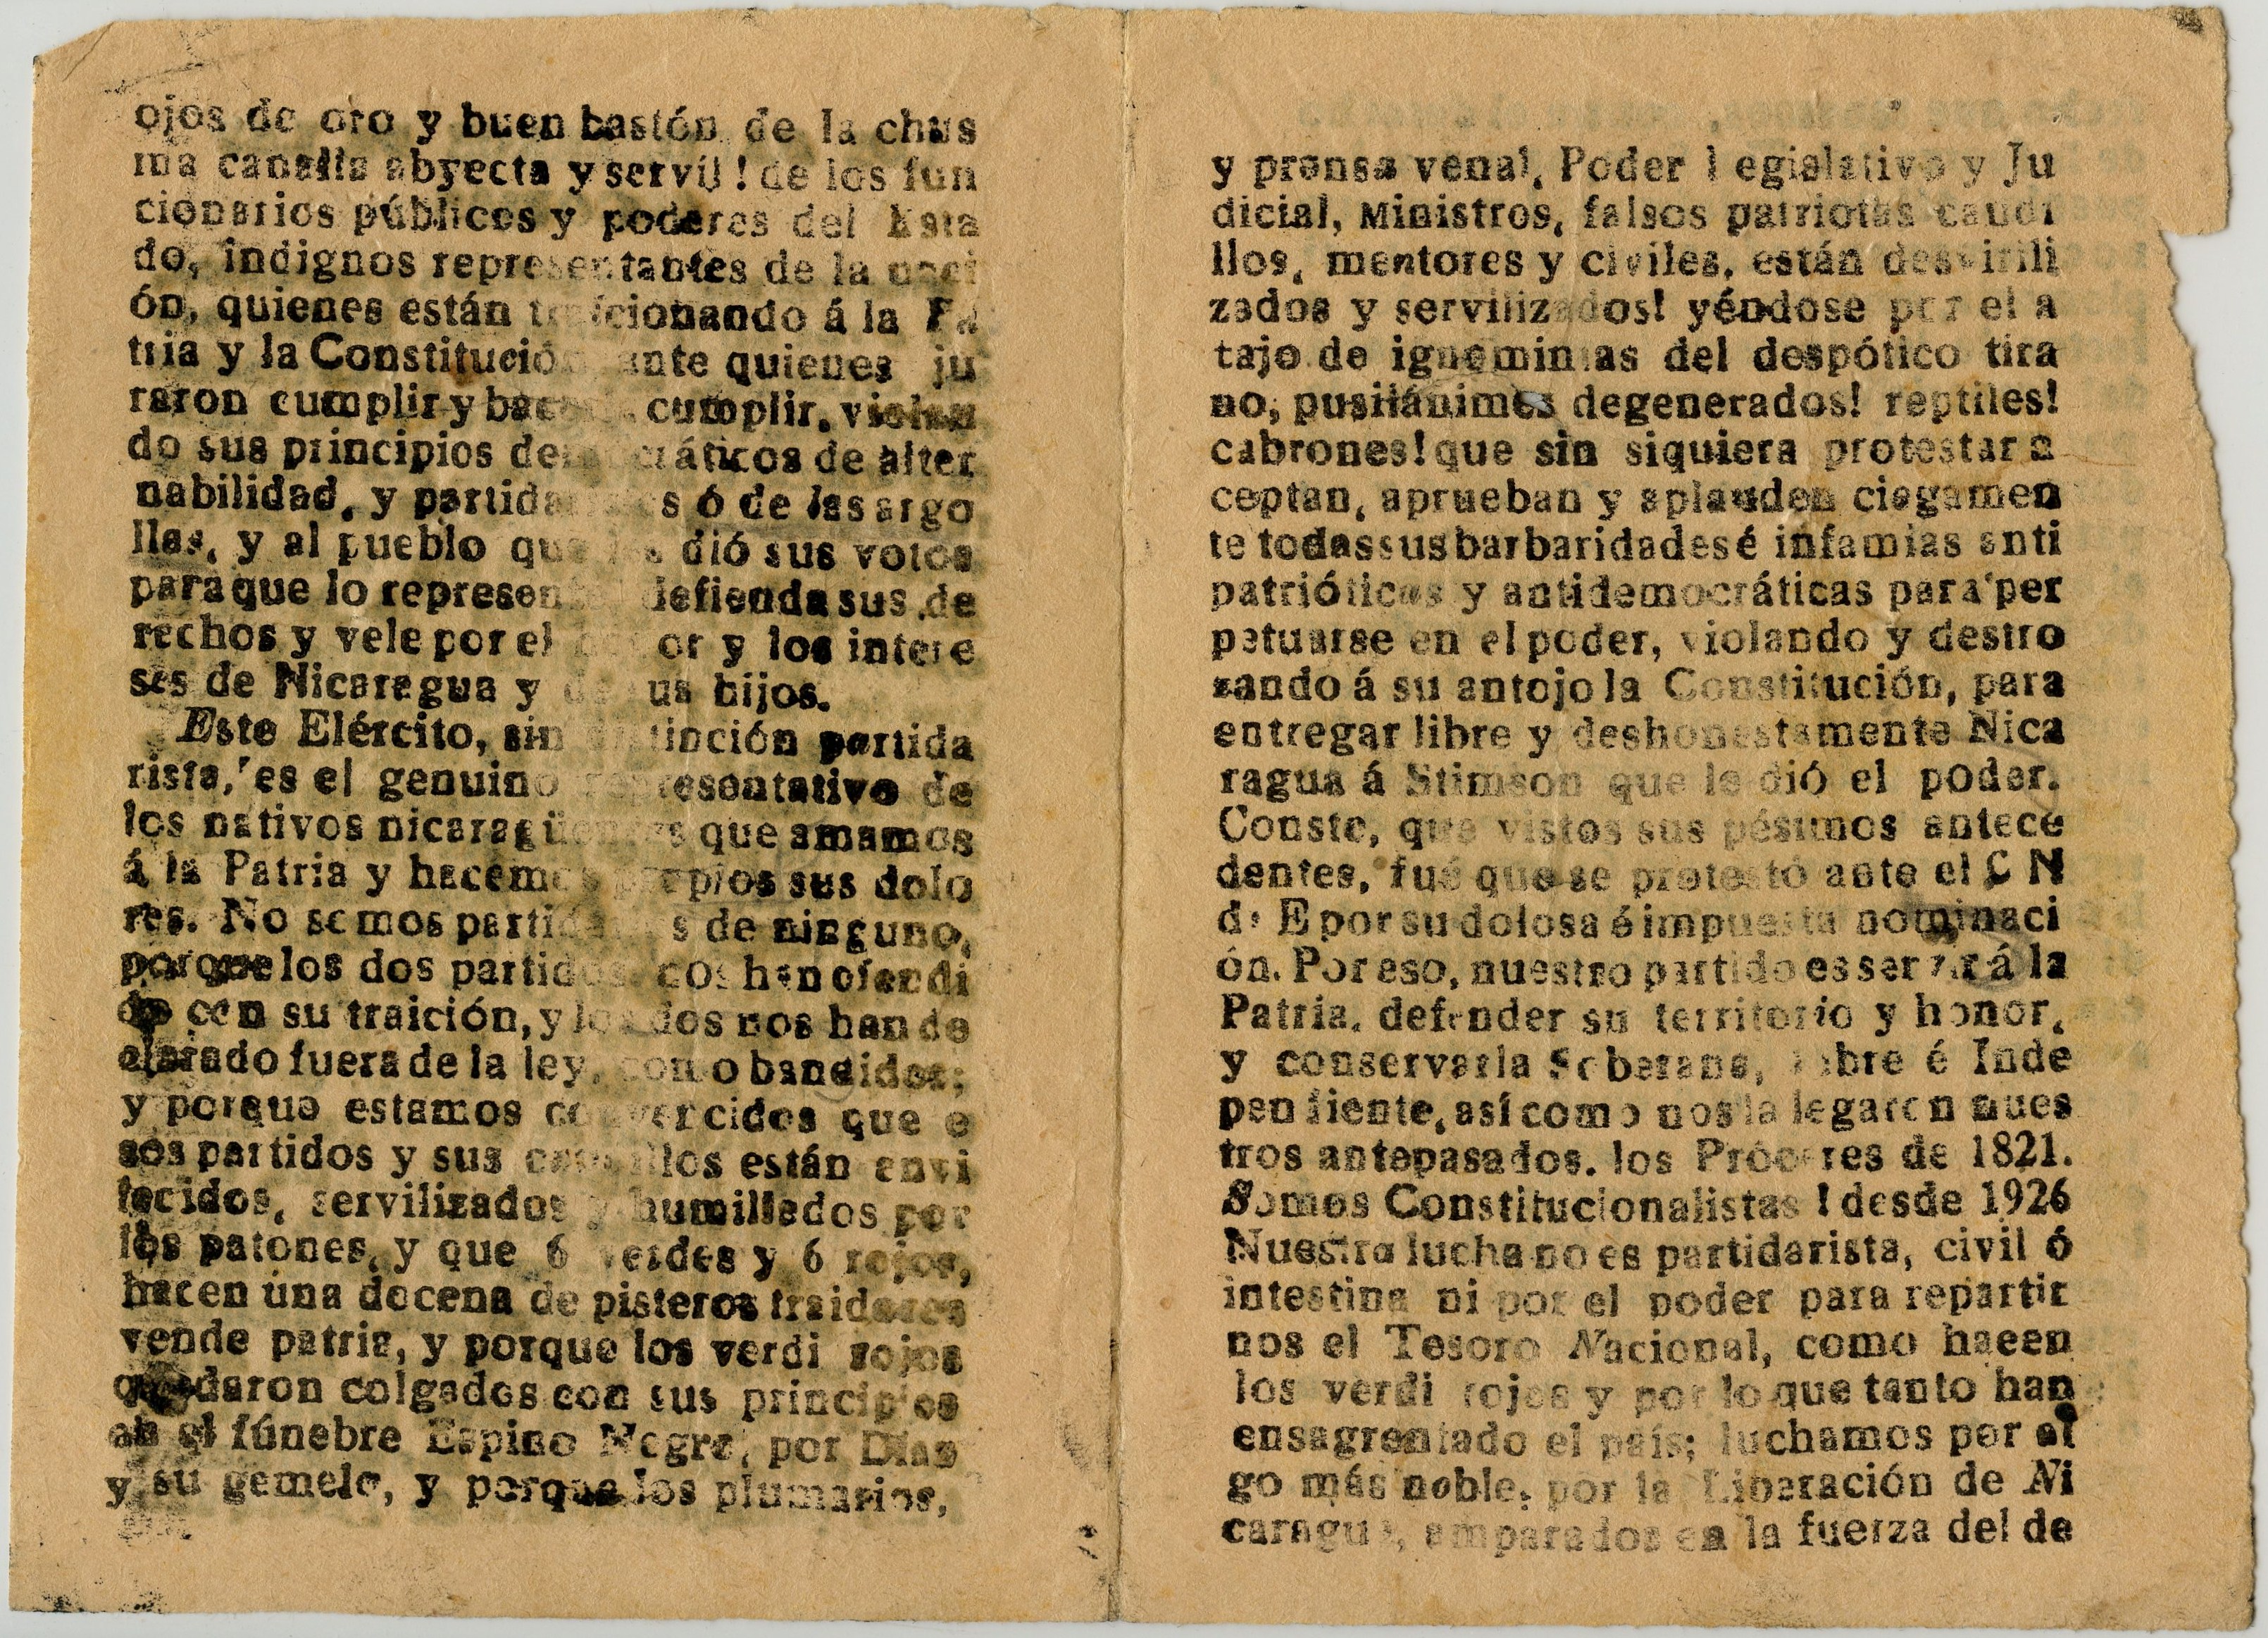 ojos de oro y buen bastón de la chus
ma canalla abyecta y servil! de los fun
cionarios públicos y poderes del Esta
do, indignos representantes de la naci
ón, quienes están traicionando á la Pa
tria y la Constitución ante quienes ju
raron cumplir y hacer cumplir, violan
do sus principios democráticos de alter
nabilidad, y partidaristas ó de las argo
llas, y al pueblo que les dió sus votos
para que lo represente defienda sus de
rechos y vele por el honor y los intere
ses de Nicaragua y de sus hijos.
Este Elército, sin distinción partida
rista, es el genuino representativo de
los nativos nicaragüenses que amamos
á la Patria y hacemos propios sus dolo
res. No somos partidarios de ninguno,
porque los dos partidos nos han ofendi
do con su traición, y los dos nos han de
clarado fuera de la ley, como bandidos;
y porque estamos convercidos que e
sos partidos y sus caudillos están envi
lecidos, servilizados y humillados por
los patones, y que 6 verdes y 6 rojos,
hacen una docena de pisteros traidores
vende patria, y porque los verdi rojos
quedaron colgados con sus principios
en el fúnebre Espino Negro, por Díaz
y su gemelo, y porque los plumarios,
y prensa venal, Poder Legislativo y Ju
dicial, Ministros, falsos patriotas caudi
llos, mentores y civiles, están desvirili
zados y servilizados! yéndose por el a
tajo de ignominias del despótico tira
no, pusilánimes degenerados! reptiles!
cabrones! que sin siquiera protestar a
ceptan, aprueban y aplauden ciegamen
te todas sus barbaridades é infamias anti
patrióticas y antidemocráticas para per
petuarse en el poder, violando y destro
zando á su antojo la Constitución, para
entregar libre y deshonestamente Nica
ragua á Stimson que le dió el poder.
Conste, que vistos sus pésimos antece
dentes, fué que se protestó ante el C N
de E por su dolosa é impuesta nominaci
ón. Por eso, nuestro partido es servir á la
Patria, defender su territorio y honor,
y conservarla Soberana, Libre é Inde
pendiente, así como nos la legaron nues
tros antepasados, los Próceres de 1821.
Somos Constitucionalistas! desde 1926
Nuestra lucha no es partidarista, civil ó
intestina ni por el poder para repartir
nos el Tesoro Nacional, como hacen
los verdi rojos y por lo que tanto han
ensagrentado el país; luchamos por al
go más noble, por la Liberación de Ni
caragua, amparados en la fuerza del de